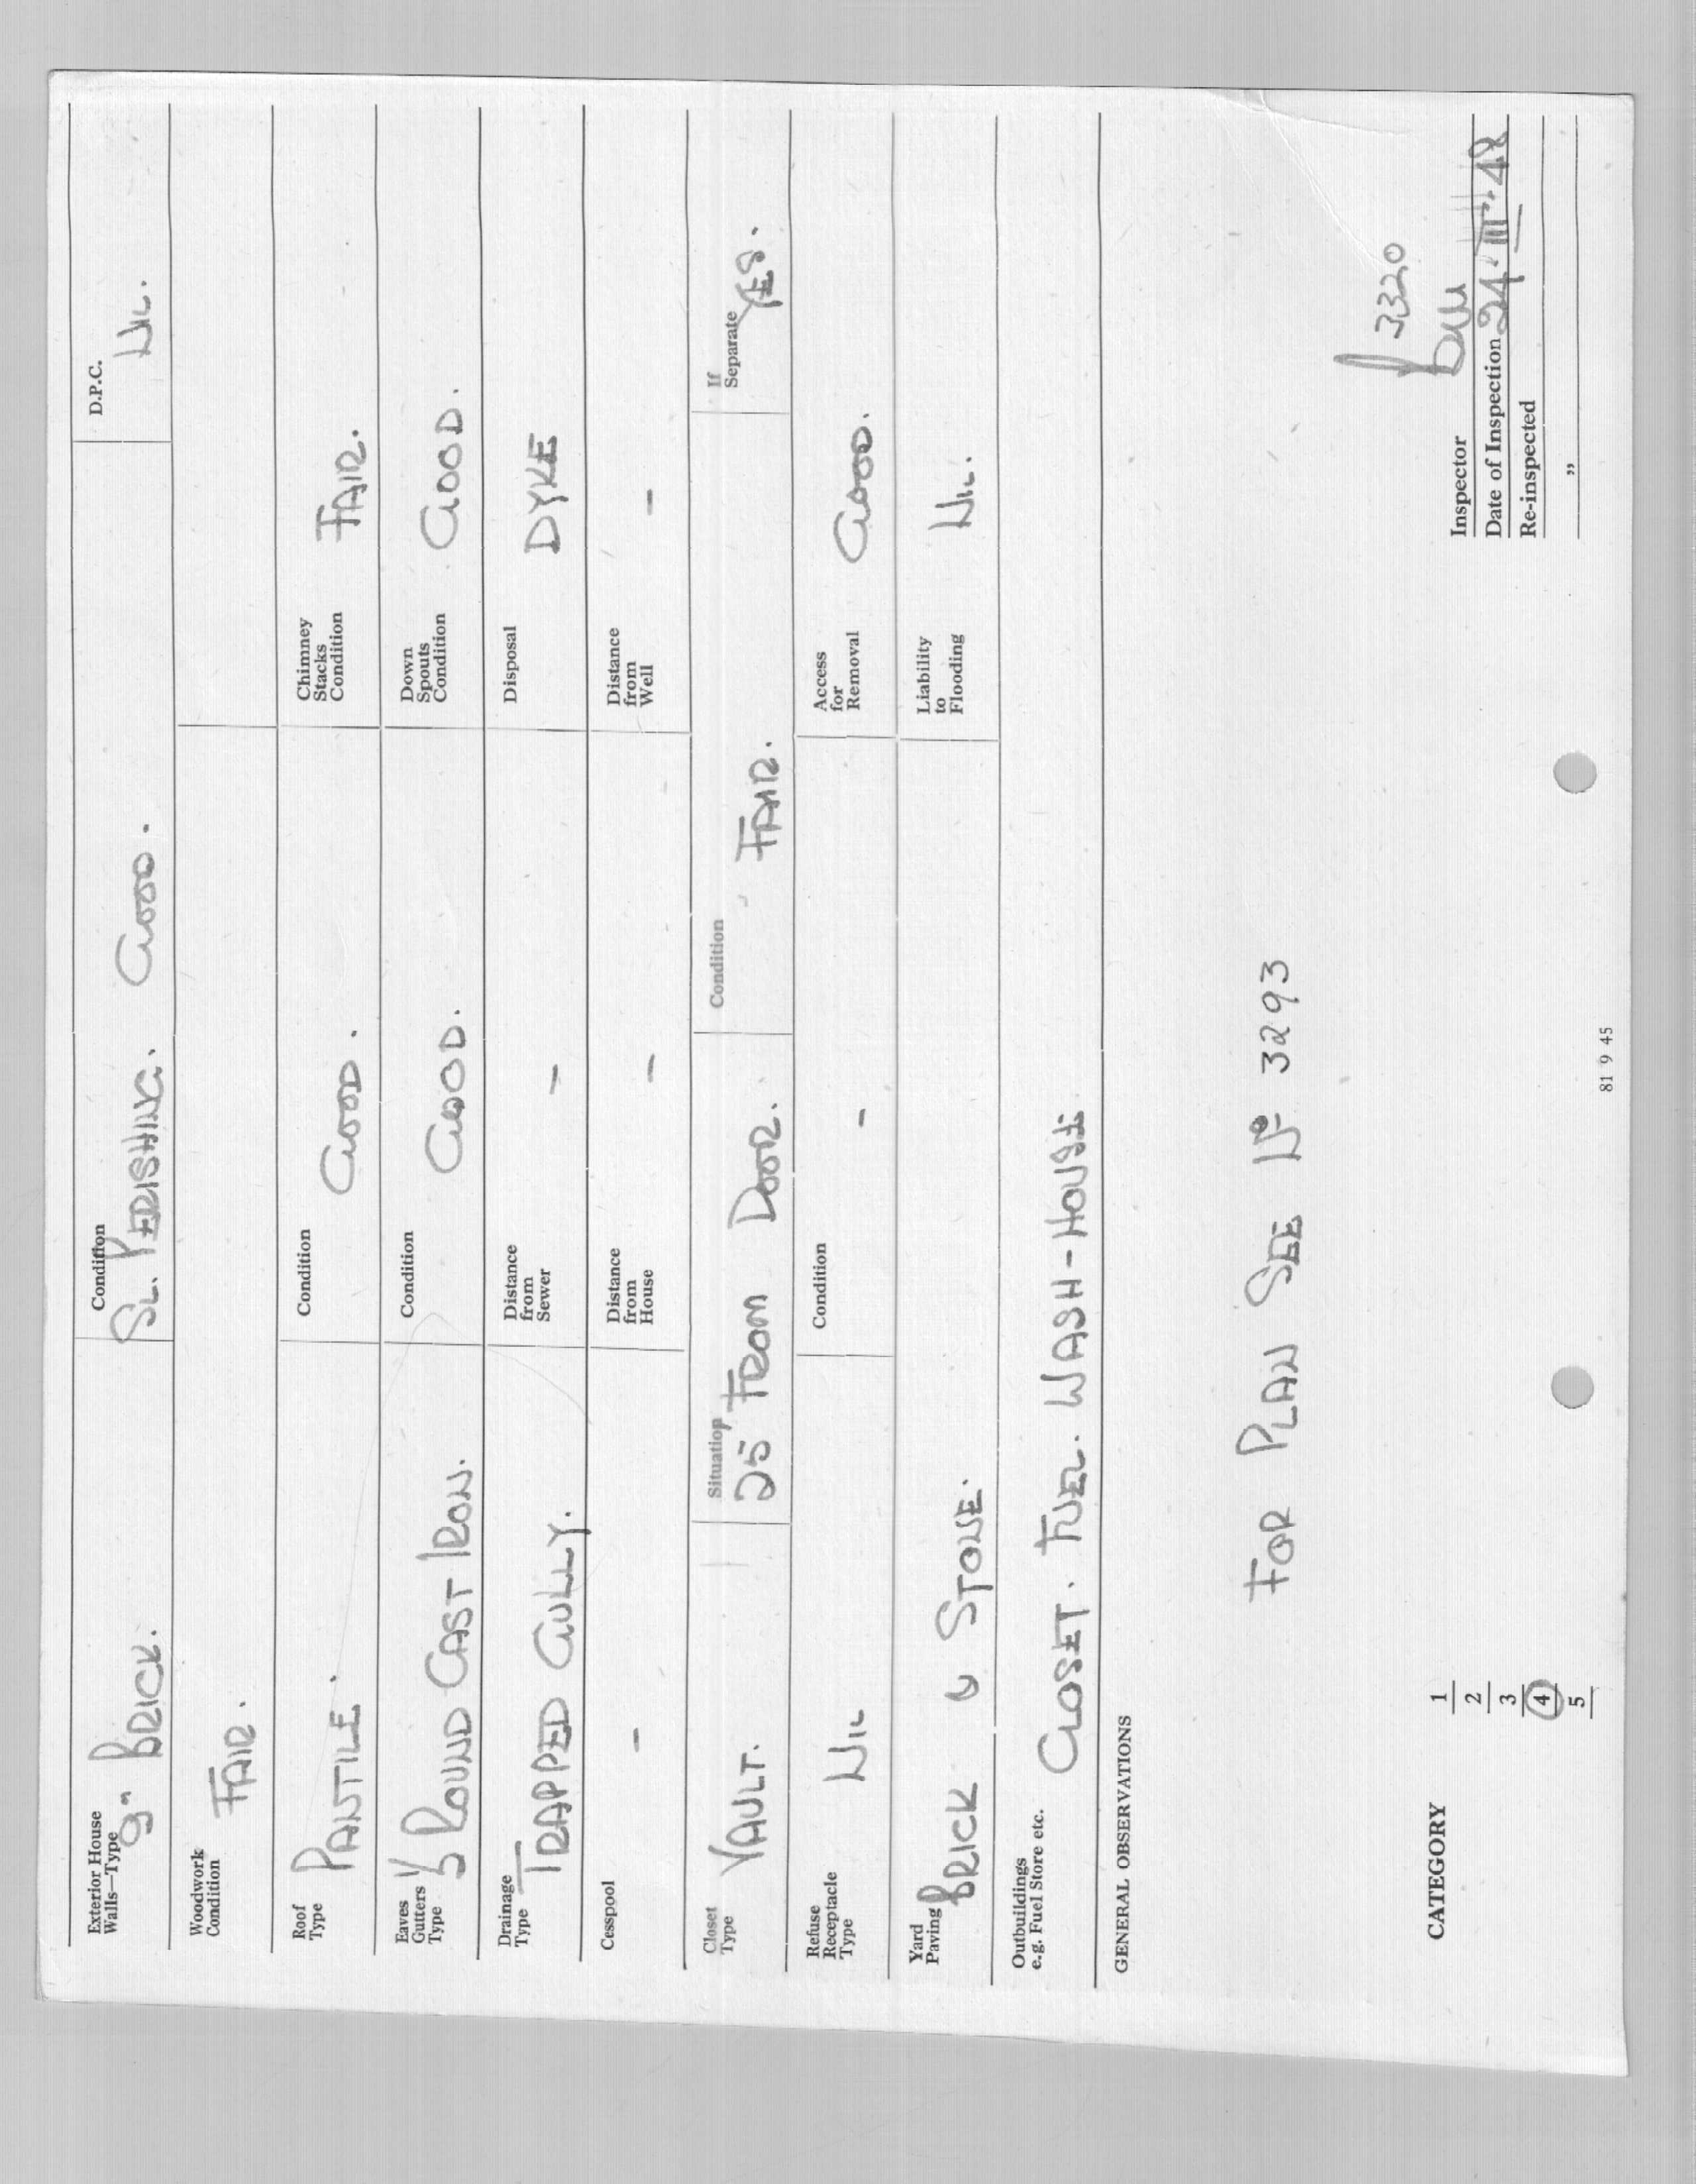 Exterior House Walls—Type 9" BRICK. Condition SL. PERISHING. GOOD. D.P.C. NIL.
Woodwork Condition FAIR.
Roof Type PANTILE. Condition GOOD. Chimney Stacks Condition FAIR.
Eaves Gutters Type ½ ROUND CAST IRON. Condition GOOD. Down Spouts Condition GOOD.
Drainage Type TRAPPED GULLY. Distance from Sewer – Disposal DYKE
Cesspool – Distance from House – Distance from Well –
Closet Type VAULT. Situation 25 FROM DOOR. Condition FAIR. If Separate YES.
Refuse Receptacle Type NIL Condition – Access for Removal GOOD.
Yard Paving BRICK & STONE. Liability to Flooding NIL.
Outbuildings e.g. Fuel Store etc. CLOSET. FUEL. WASH-HOUSE.
GENERAL OBSERVATIONS
FOR PLAN SEE Nº 3293
3320
CATEGORY 1
2
3
4
5
Inspector
Date of Inspection 24·III·48
Re-inspected
"
81 9 45